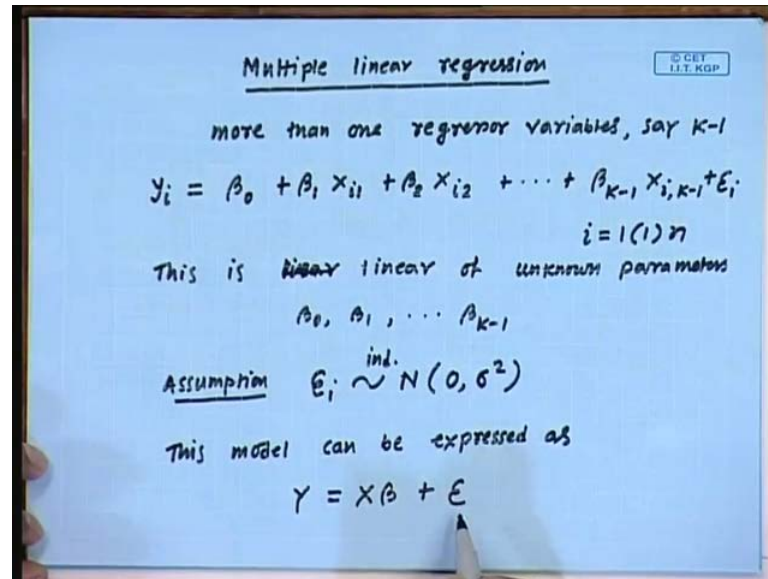 Multiple linear regression
© CET
I.I.T. KGP
more than one regressor variables, say K-1
y_i = β_0 + β_1 x_{i1} + β_2 x_{i2} + ⋯ + β_{K-1} x_{i,K-1} + ε_i
i = 1(1)n
This is linear of unknown parameters
β_0, β_1, ⋯ β_{K-1}
Assumption ε_i ind. ~ N(0, σ²)
This model can be expressed as
Y = Xβ + ε